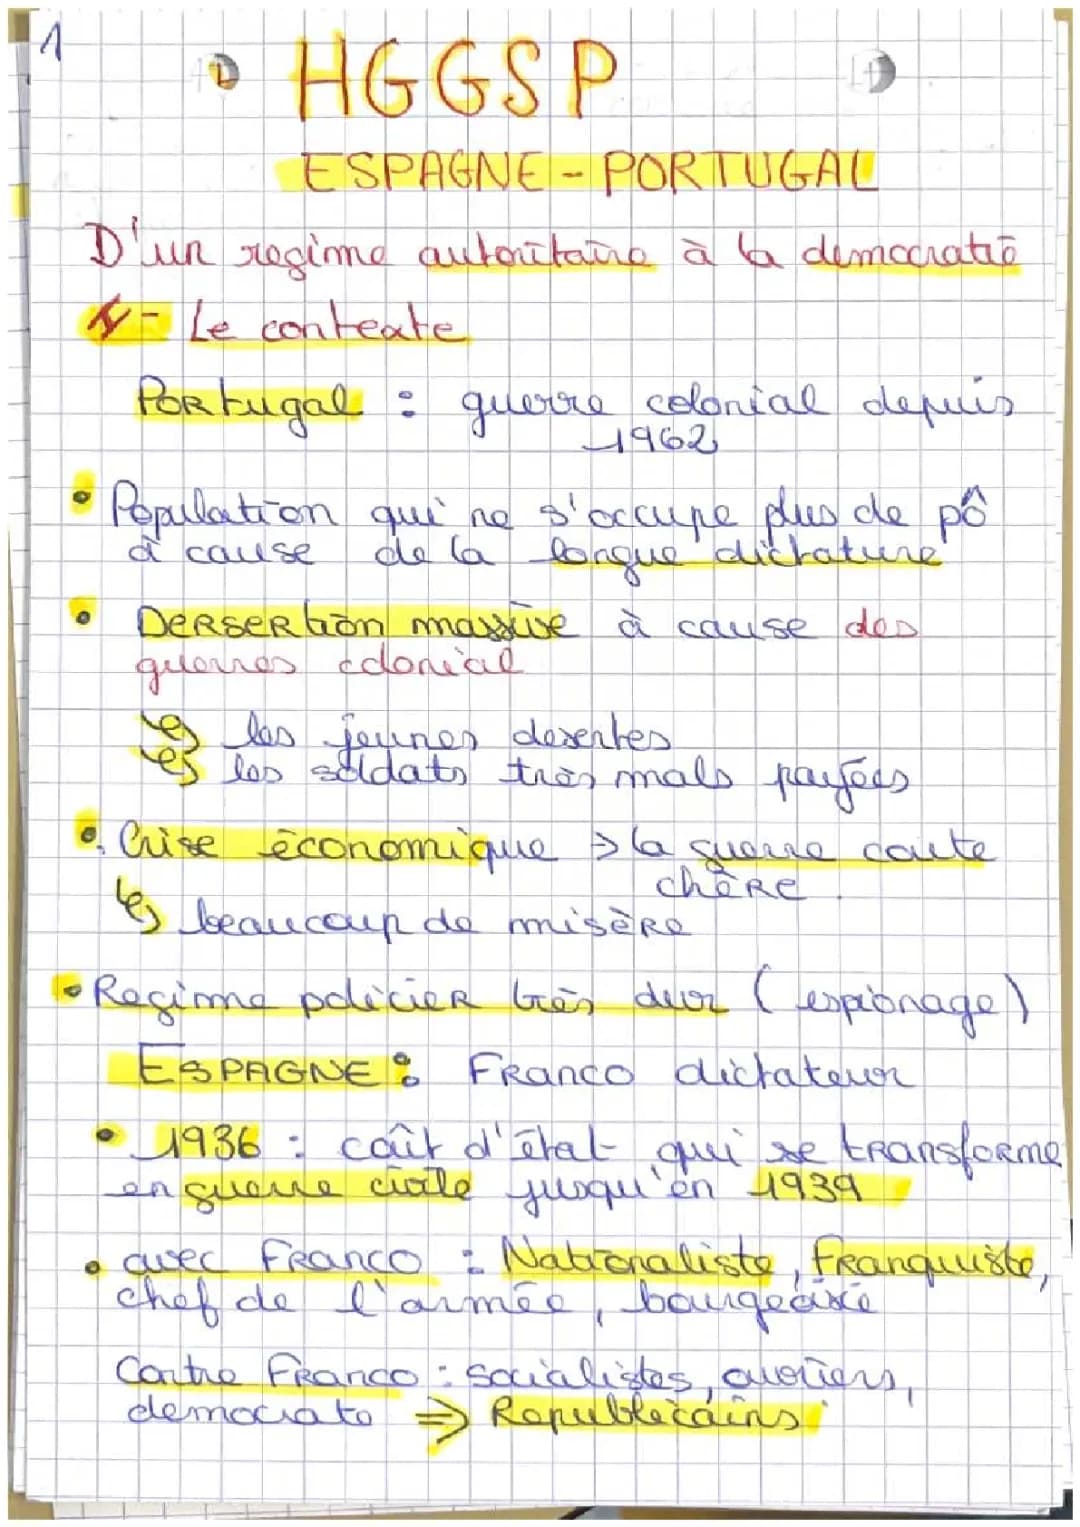 1
HGGSP
ESPAGNE - PORTUGAL
D'un regime autoritaire à la democratie
I - Le contexte
Portugal : guerre colonial depuis
1962
• Population qui ne s'occupe plus de pô
à cause de la longue dictature
• Dersertion massive à cause des
guerres colonial
↳ les jeunes desertes
↳ les soldats très mals payées
• Crise économique → la guerre coute
chère.
↳ beaucoup de misère
• Regime policier très dur (espionage)
ESPAGNE : Franco dictateur
• 1936 : coût d'état qui se transforme
en guerre civile jusqu'en 1939
• avec Franco : Nationaliste, Franquiste,
chef de l'armée, bourgeoisie
Contre Franco : socialistes, ouvriers,
democrate ⇒ Republicains